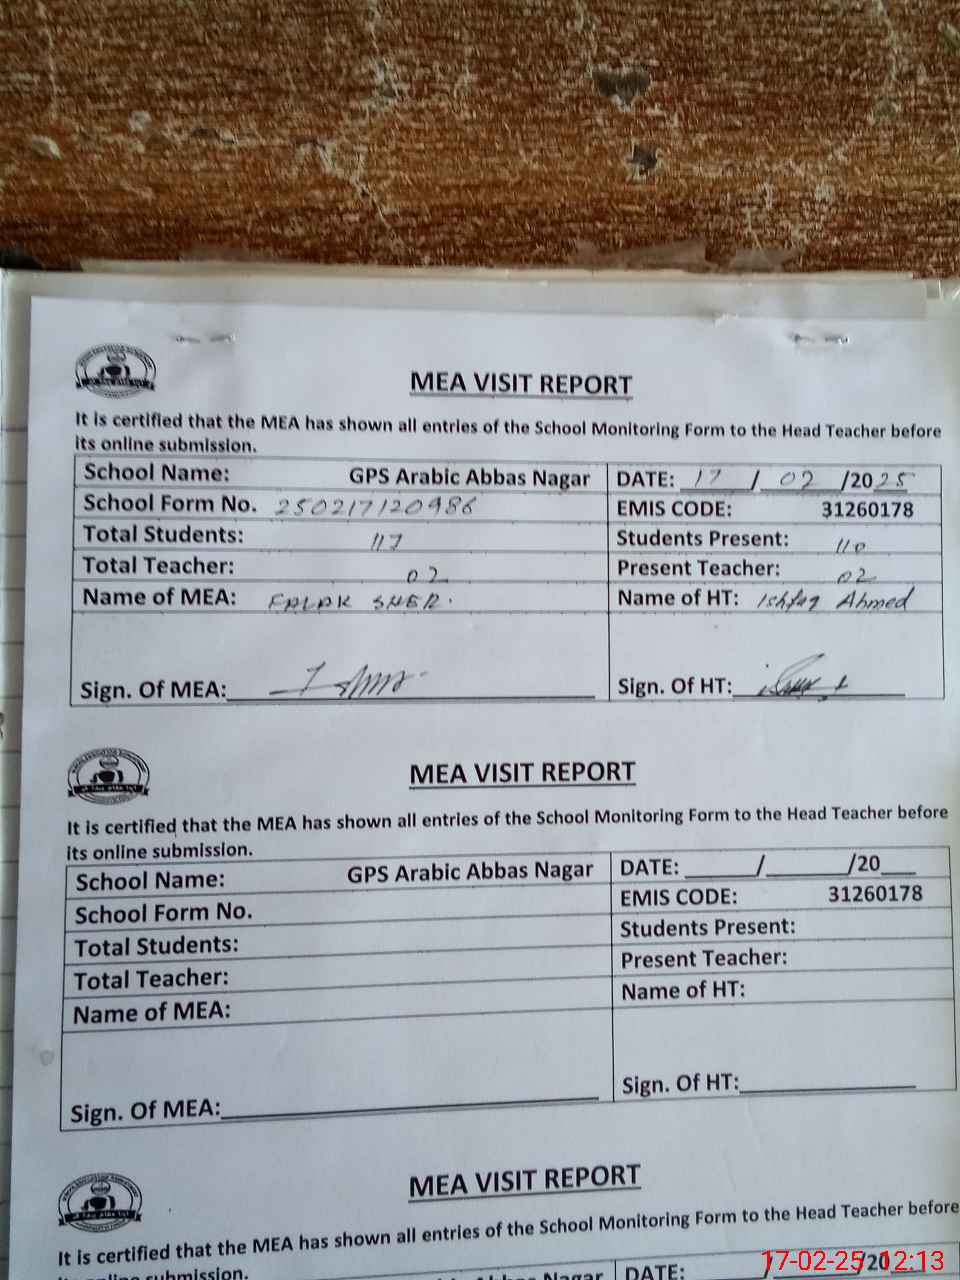 MEA VISIT REPORT
It is certified that the MEA has shown all entries of the School Monitoring Form to the Head Teacher before
its online submission.
School Name: GPS Arabic Abbas Nagar DATE: 17 / 02 /2025
School Form No. 250217120986 EMIS CODE: 31260178
Total Students: 117 Students Present: 110
Total Teacher: 02 Present Teacher: 02
Name of MEA: FALAK SHER. Name of HT: Ishfaq Ahmed
Sign. Of MEA: Sign. Of HT:
MEA VISIT REPORT
It is certified that the MEA has shown all entries of the School Monitoring Form to the Head Teacher before
its online submission.
School Name: GPS Arabic Abbas Nagar DATE: ______/_______/20___
School Form No. EMIS CODE: 31260178
Total Students: Students Present:
Total Teacher: Present Teacher:
Name of MEA: Name of HT:
Sign. Of MEA: Sign. Of HT:
MEA VISIT REPORT
It is certified that the MEA has shown all entries of the School Monitoring Form to the Head Teacher before
its online submission.
Abbas Nagar DATE: / /20
17-02-25 12:13